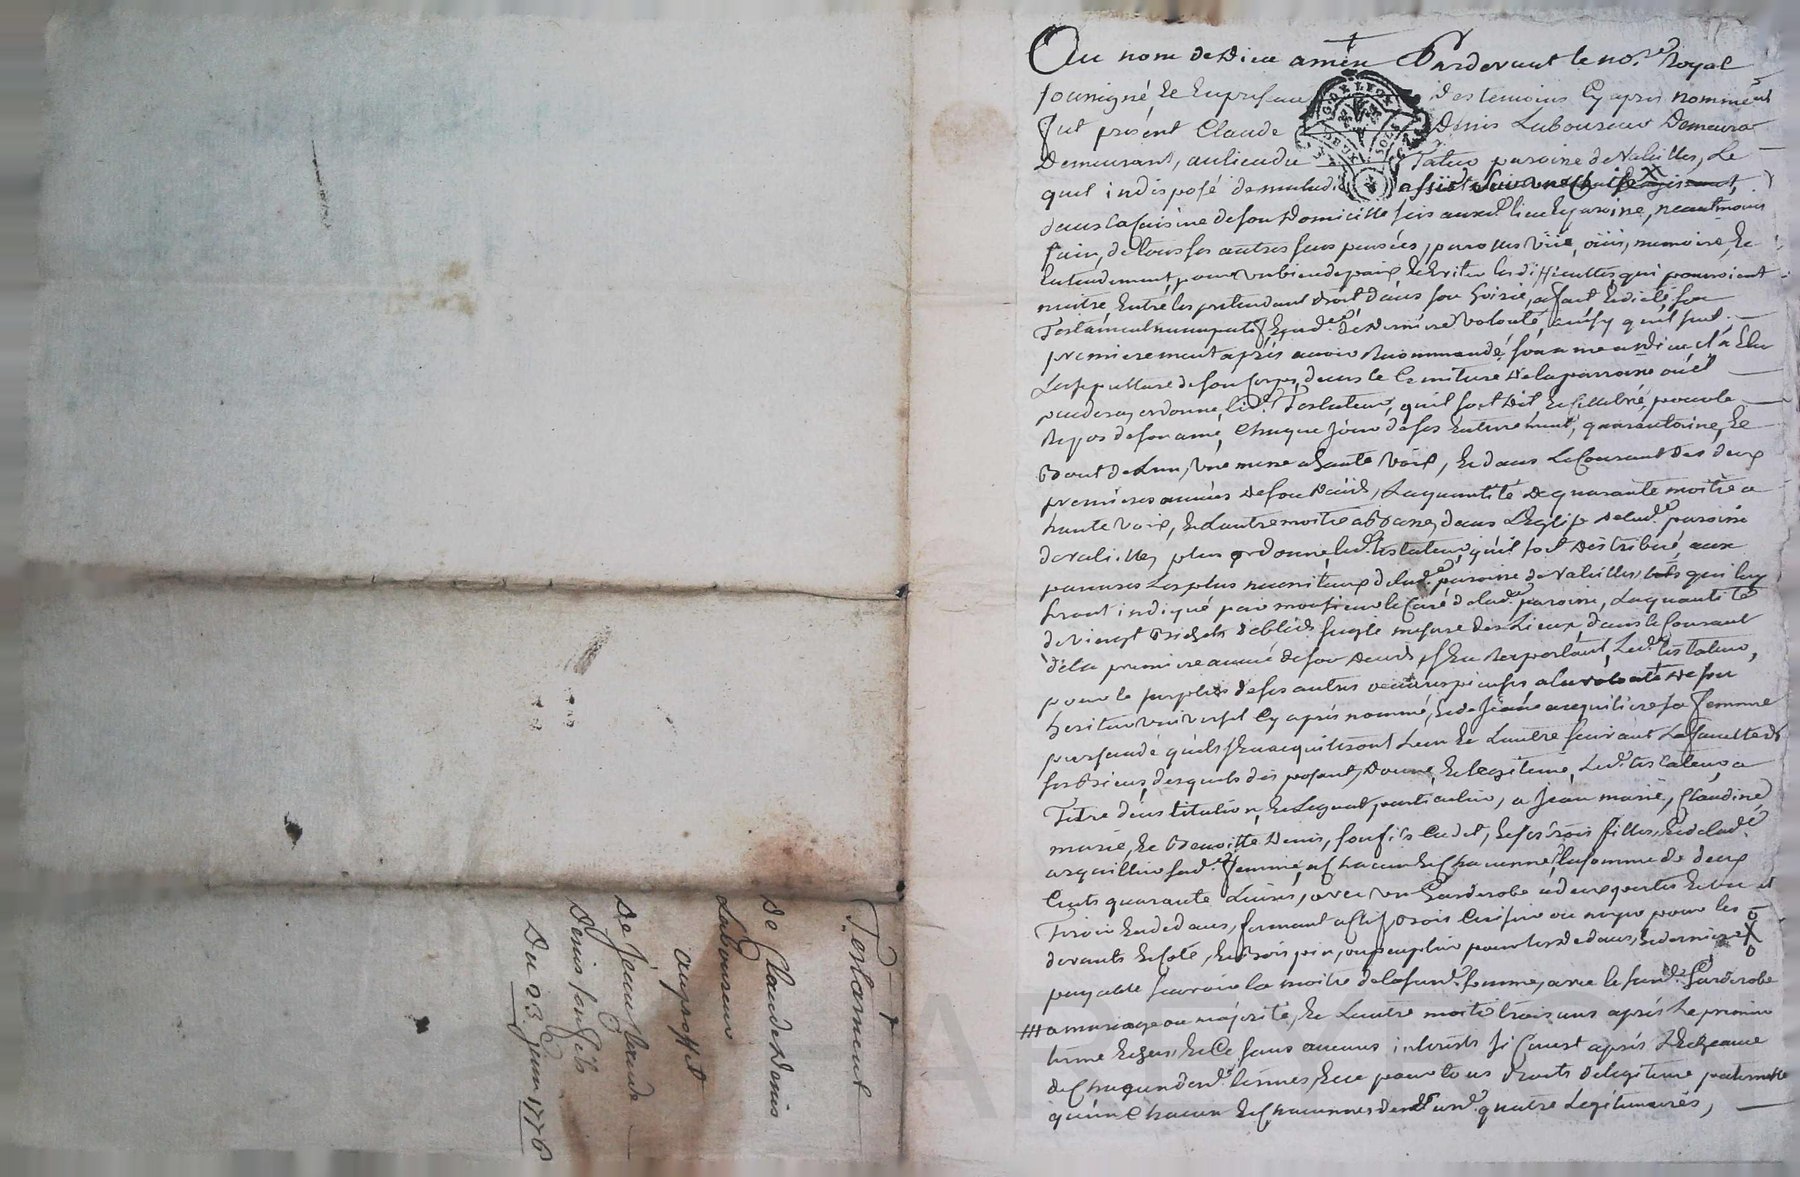 Testament
De Claude Denis
Laboureur
au proffit
De Jean Claude
Denis son fils
Du 23 Juin 1776
Au nom de Dieu amen Pardevant le no.re Royal
soussigné, et en présance des temoins cy apres nommés
fut présent Claude Denis Laboureur Demeura
Demeurant, au lieu du paroisse de Valeilles, Le
quel indisposé de maladie assis sur une chaise
dans la Cuisine de son Domicille sis audit lieu et paroisse, neantmoins
sain, de tous ses autres sens pensées, parolles vüe, oüis, memoire, et
Entendement, pour un bien de paix et Eviter les difficultés qui pourroient
naitre, Entre les pretendant droit dans son hoirie, a fait et dicté son
Testament nuncupatif, et ord.e de Derniere Volonté, ainsy qu'il suit
premierement après avoir Recommandé son ame a Dieu et a Elu
La sepulture de son Corps, dans le Cimitiere De la parroisse où il
ordonne, led.t Testateur, qu'il soit Dit et cellebré, pour le
Repos de son ame, chaque jour de ses Enterrement, quarantaine, et
Bout de L'an, une messe a haute voix, et dans Le Courant des deux
premieres années de son Décés, La quantité de quarante moitié a
haute voix, et L'autre moitie a basse, dans L'Eglise de lad.e paroisse
de valeilles, plus ordonne led.t testateur, qu'il soit distribué, aux
pauvres Les plus necessiteux de lad.e paroisse de Valeilles, qui luy
seront indiqué par monsieur le Curé de lad.e paroisse, La quantité
de vingt Bichets de bled seigle mesure des Lieux, dans le Courant
de la premiere année de son Deces, s'en Rapportant, Led.t testateur,
pour le surplus de ses autres œuvres pieuses a la volonté De son
heritier universel cy après nommé, et de Jeanne arquilliere sa femme
persuadé qu'ils s'en acquiteront L'un et L'autre suivant La faculté de
ses Biens, desquels disposant, Donne, et legitime, Led.t testateur a
Titre d'institution, et Legat particulier, a Jean marie, Claudine
marie, et Benoitte Denis, son fils Cadet, et ses trois filles, et de lad.e
arquilliere sad.e femme, a chacun et chacunne, la somme de deux
Cents quarante Livres, avec un Garderobe a deux portes et un
Tiroir En dedans, fermant a clef, Bois Cerisier ou noyer pour les
devants et Coté, et Bois pin, ou sapin pour les Dedans, et derniere
payable sçavoir la moitie de la sus.d somme, avec le sus.d Garderobe
a mariage ou majorité, et L'autre moitié trois ans après Le premier
terme Echeu, et Ce sans aucuns interests si Cen'est après L'Echeance
de Chaqun desd.ts termes, et ce pour tous Droits de legitime paternelle
qu'un Chacun et Chacunnes Desd. quatre Légitimaires,